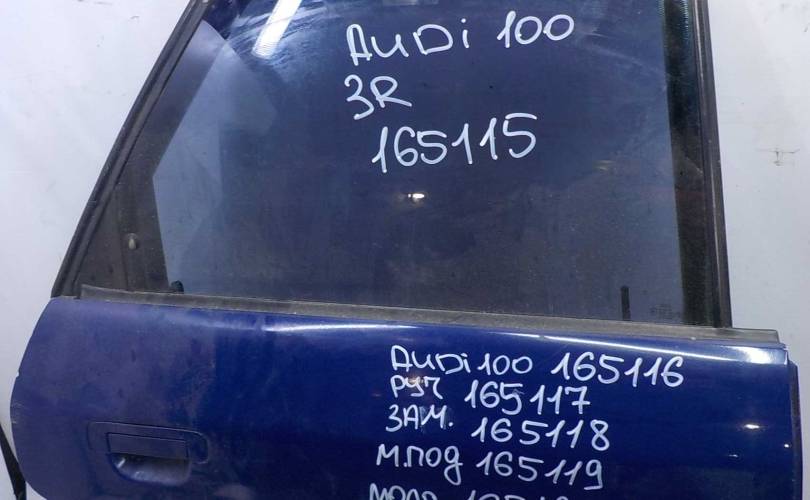 AUDi 100
ЗR
165115
AUDi 100 165116
РУЧ 165117
ЗАМ. 165118
М.ПОД 165119